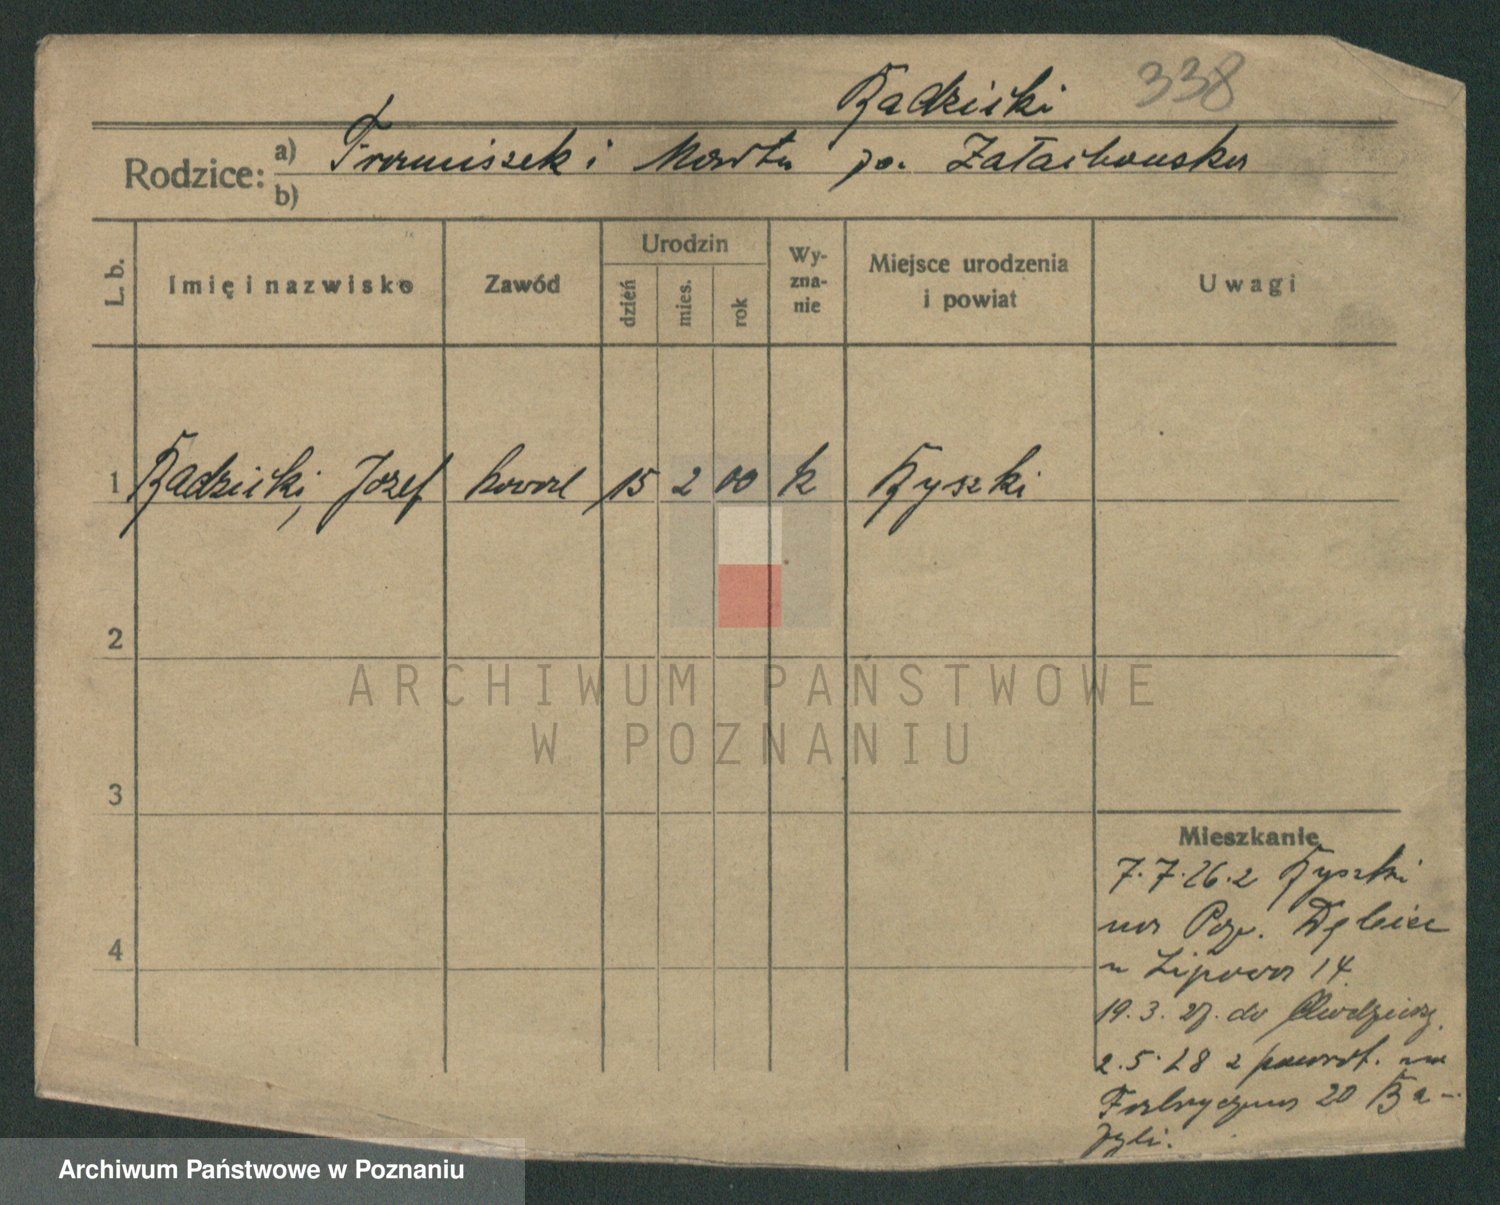 Radziński 338
Rodzice: a) Franciszek i Marta po. Załachowska
b)
L. b. Imię i nazwisko Zawód Urodzin dzień mies. rok Wyznanie Miejsce urodzenia i powiat Uwagi
1 Józef kowal 15 2 00 k
2
ARCHIWUM PAŃSTWOWE
W POZNANIU
3
Mieszkanie
7.7.26. z
na Pozn. Dębiec
u Lipowa 14
4
19.3.27. do
2.5.28 z powrot. na
Fabryczna 20
Archiwum Państwowe w Poznaniu